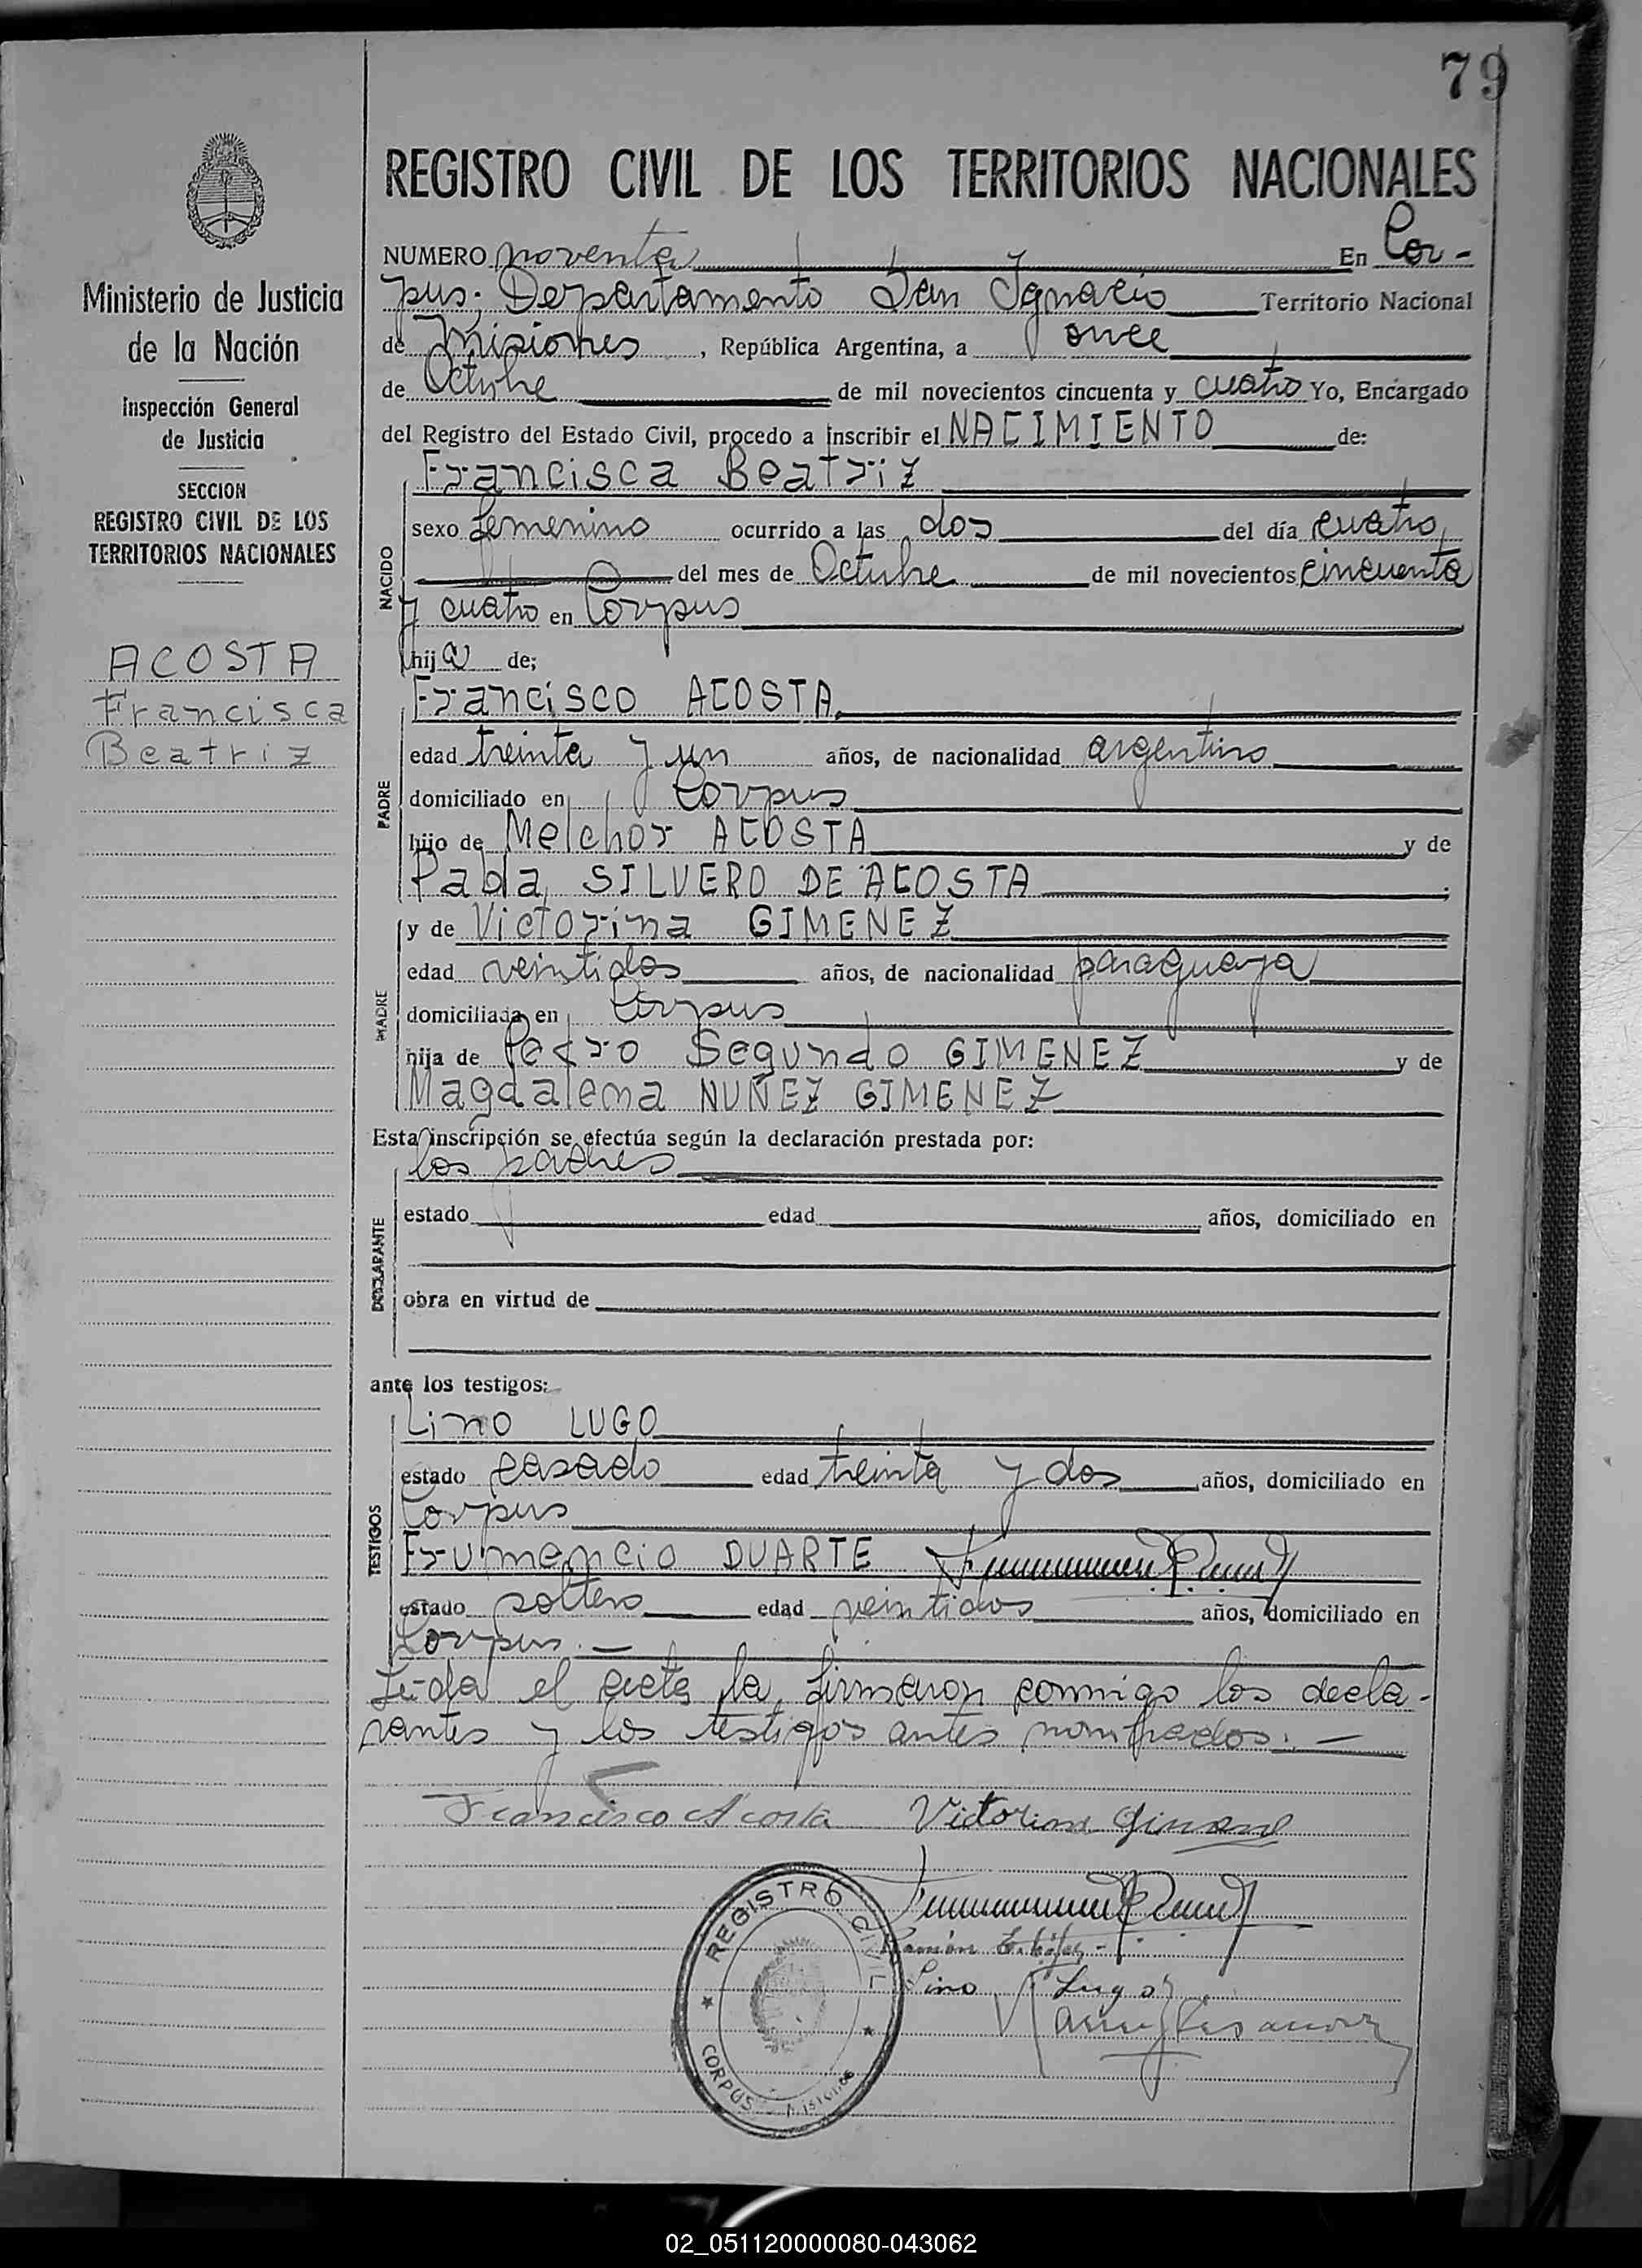 79
REGISTRO CIVIL DE LOS TERRITORIOS NACIONALES
Ministerio de Justicia
de la Nación
Inspección General
de Justicia
SECCION
REGISTRO CIVIL DE LOS
TERRITORIOS NACIONALES
ACOSTA
Francisca
Beatriz
NUMERO noventa En Cor-
pus: Departamento San Ignacio Territorio Nacional
de Misiones, República Argentina, a once
de Octubre de mil novecientos cincuenta y cuatro Yo, Encargado
del Registro del Estado Civil, procedo a inscribir el NACIMIENTO de:
NACIDO
Francisca Beatriz
sexo femenino ocurrido a las dos del día cuatro
del mes de Octubre de mil novecientos cincuenta
y cuatro en Corpus
hija de;
PADRE
Francisco ACOSTA
edad treinta y un años, de nacionalidad argentino
domiciliado en Corpus
hijo de Melchor ACOSTA y de
Pabla SILVERO DE ACOSTA ;
MADRE
y de Victorina GIMENEZ
edad veintidos años, de nacionalidad paraguaya
domiciliada en Corpus
hija de Pedro Segundo GIMENEZ y de
Magdalena NUÑEZ GIMENEZ
Esta inscripción se efectúa según la declaración prestada por:
DECLARANTE
los padres
estado edad años, domiciliado en
obra en virtud de
ante los testigos:
TESTIGOS
Lino LUGO
estado casado edad treinta y dos años, domiciliado en
Corpus
Frumencio DUARTE
estado soltero edad veintidos años, domiciliado en
Corpus.—
Leída el acta la firmaron conmigo los decla-
rantes y los testigos antes nombrados:—
Francisco Acosta Victorina Gimenez
Ramón
Lino Lugo
REGISTRO CIVIL
CORPUS - Misiones
02_051120000080-043062